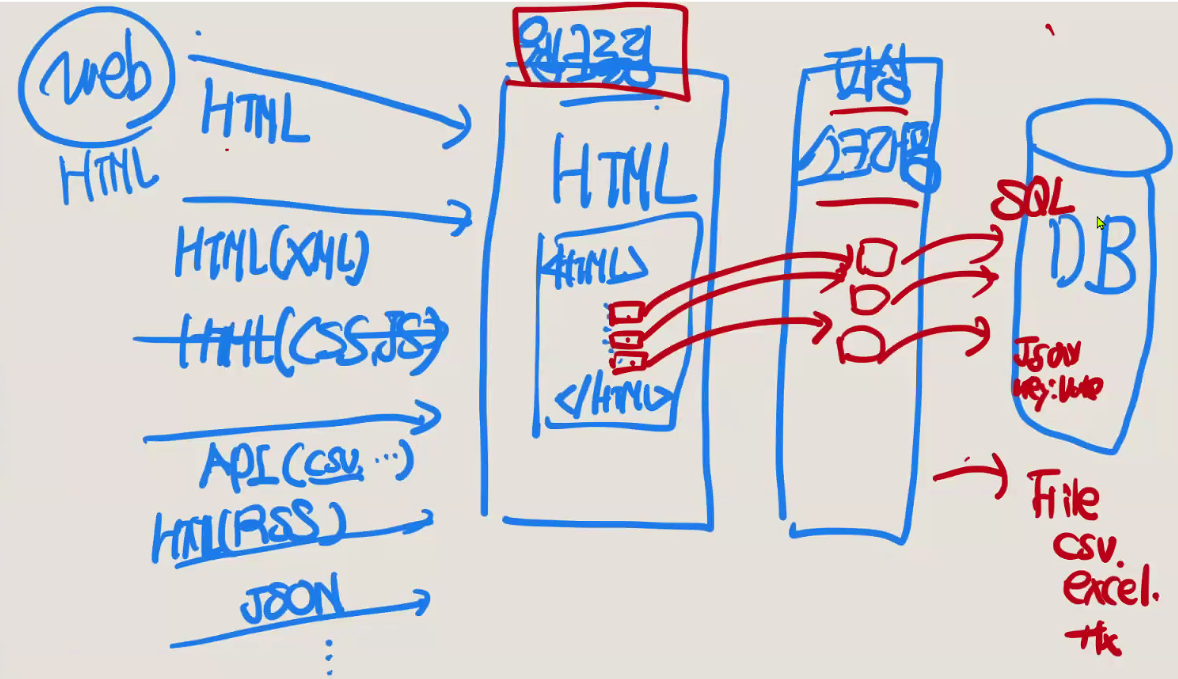 web
HTML
HTML
HTML(XML)
HTML(CSS,JS)
API(CSV, ...)
HTML(RSS)
JSON
크롤링
HTML
<HTML>
</HTML>
파싱
SQL
DB
JSON
File
CSV.
excel.